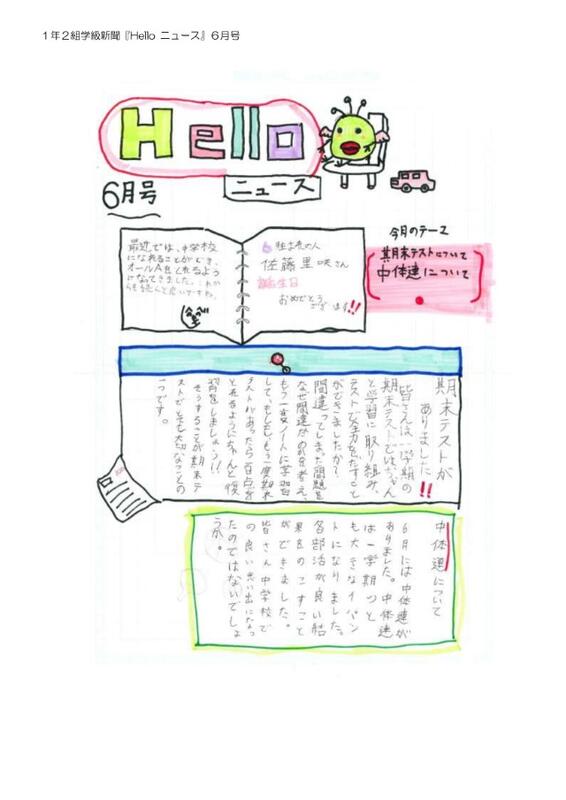 1年2組学級新聞『Hello ニュース』6月号
Hello
ニュース
6月号
最近では、中学校
になれることができ、
オールAをとれるよう
になってきました。これか
らも読んで広いですね。
6月生まれの人
佐藤里咲さん
誕生日
おめでとう
ございます!!
今月のテーマ
期末テストについて
中体連について
期末テストが
ありました!!
皆さんは一学期の
期末テストではちゃん
と学習に取り組み、
テストで全力をだすこと
ができましたか?
間違ってしまった問題を
なぜ間違ったのかを考え、
もう一度ノートに学習
して、もしも、もう一度期末
テストがあったら百点を
とれるようにちゃんと復
習をしましょう!!
そうすることが期末テ
ストでとても大切なことの
一つです。
中体連について
6月には中体連が
ありました。中体連
は一学期でっと
も大きなイバン
トになりました。
各部活が良い結
果をのこすこと
ができました。
皆さん中学校で
の良い思い出になっ
たのではないでしょ
うか。